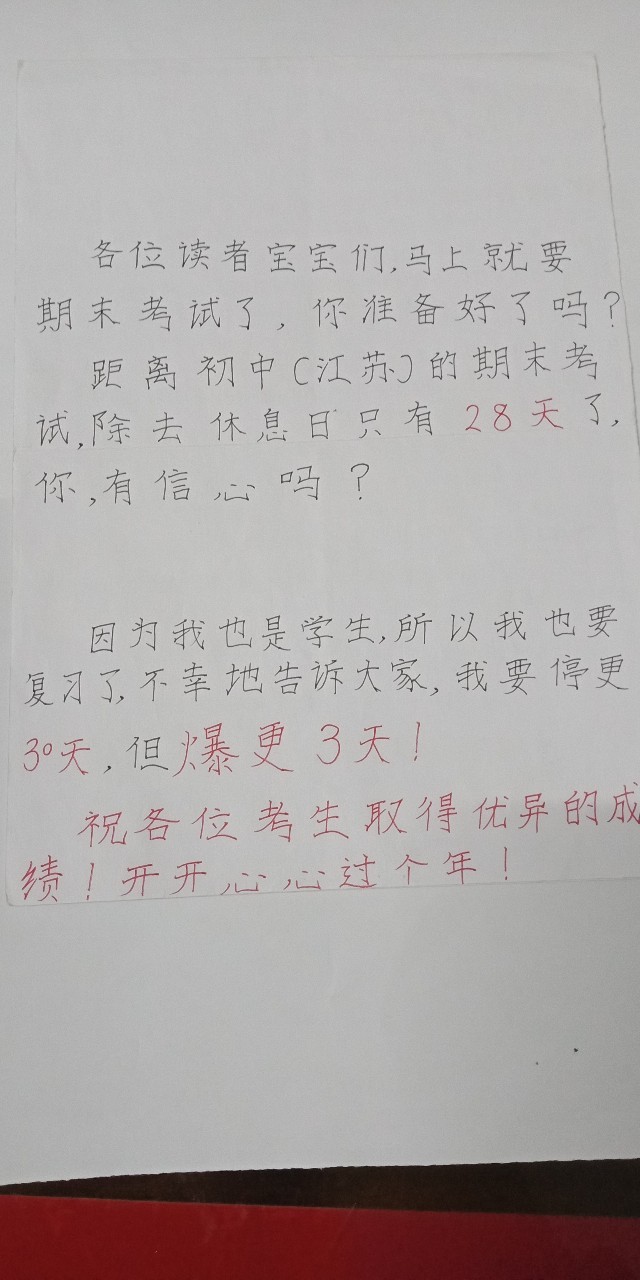 各位读者宝宝们,马上就要
期末考试了,你准备好了吗?
距离初中(江苏)的期末考
试,除去休息日只有28天了,
你,有信心吗?
因为我也是学生,所以我也要
复习了,不幸地告诉大家,我要停更
30天,但爆更3天!
祝各位考生取得优异的成
绩!开开心心过个年!